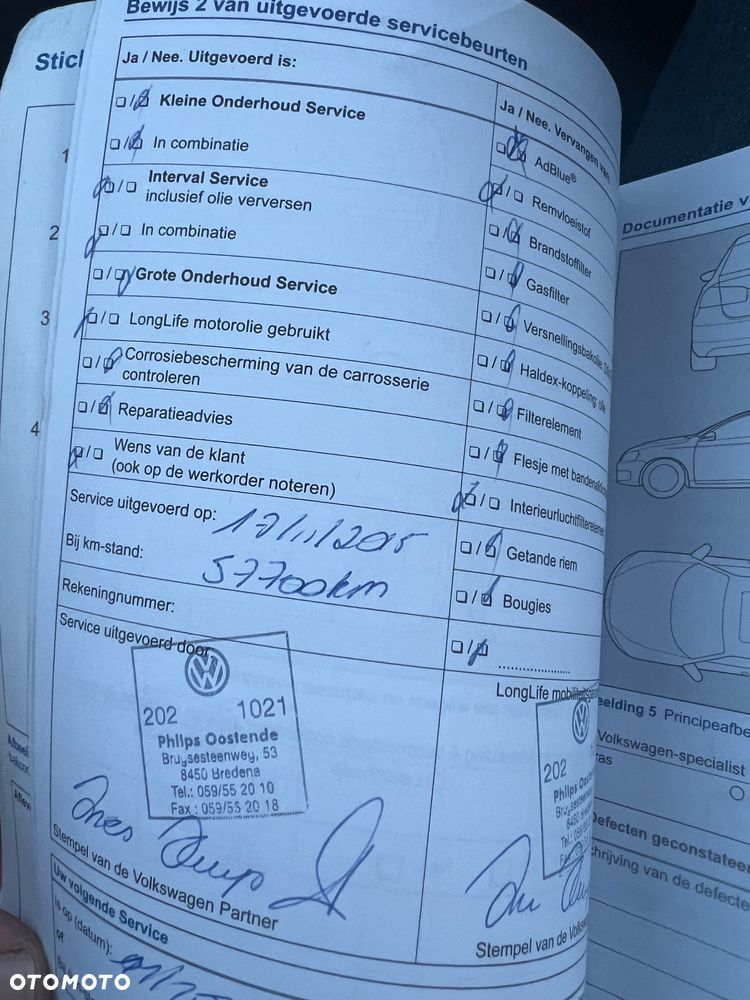 Bewijs 2 van uitgevoerde servicebeurten
Ja / Nee. Uitgevoerd is:
Kleine Onderhoud Service
In combinatie
Interval Service
inclusief olie verversen
In combinatie
Grote Onderhoud Service
LongLife motorolie gebruikt
Corrosiebescherming van de carrosserie
controleren
Reparatieadvies
Wens van de klant
(ook op de werkorder noteren)
Service uitgevoerd op: 17/11/2015
Bij km-stand: 57700km
Rekeningnummer:
Service uitgevoerd door:
202 1021
Philps Oostende
Brugsesteenweg, 53
8450 Bredene
Tel.: 059/55 20 10
Fax : 059/55 20 18
Stempel van de Volkswagen Partner
Uw volgende Service
is op (datum):
of
Ja / Nee. Vervangen van
AdBlue®
Remvloeistof
Brandstoffilter
Gasfilter
Versnellingsbakolie,
Haldex-koppeling: olie
Filterelement
Flesje met
Interieurluchtfilterelement
Getande riem
Bougies
LongLife
202
Philps
Stempel van de
1
2
3
4
Documentatie
Afbeelding 5 Principeafbe
Volkswagen-specialist